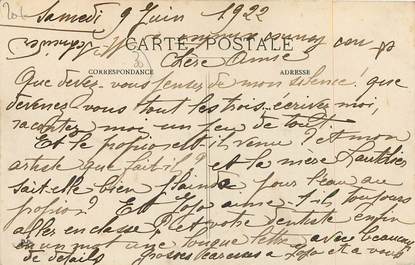 Samedi 9 Juin 1922
CARTE POSTALE
Chère Amie
CORRESPONDANCE ADRESSE
Que devez-vous penser de mon silence! que
devenez vous tout les trois. écrivez moi,
racontez moi un peu de tout.
Et le proprio est-il venu? et mon
article que fait-il? et la mère
sait-elle bien plainde pour l'eau au
proprio? Et Jojo aime-t-il toujours
aller en classe? et votre dentiste enfin
en un mot une longue lettre avec beaucoup
de détails grosses caresses a Jojo et a vous